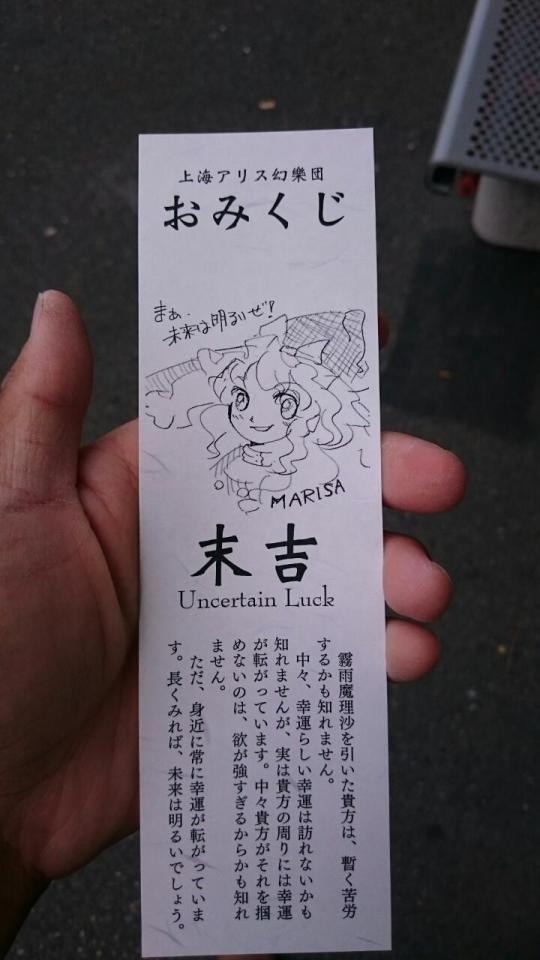 上海アリス幻樂団
おみくじ
まぁ、
未来は明るいぜ!
MARISA
末吉
Uncertain Luck
霧雨魔理沙を引いた貴方は、暫く苦労
するかも知れません。
中々、幸運らしい幸運は訪れないかも
知れませんが、実は貴方の周りには幸運
が転がっています。中々貴方がそれを掴
めないのは、欲が強すぎるからかも知れ
ません。
ただ、身近に常に幸運が転がっていま
す。長くみれば、未来は明るいでしょう。